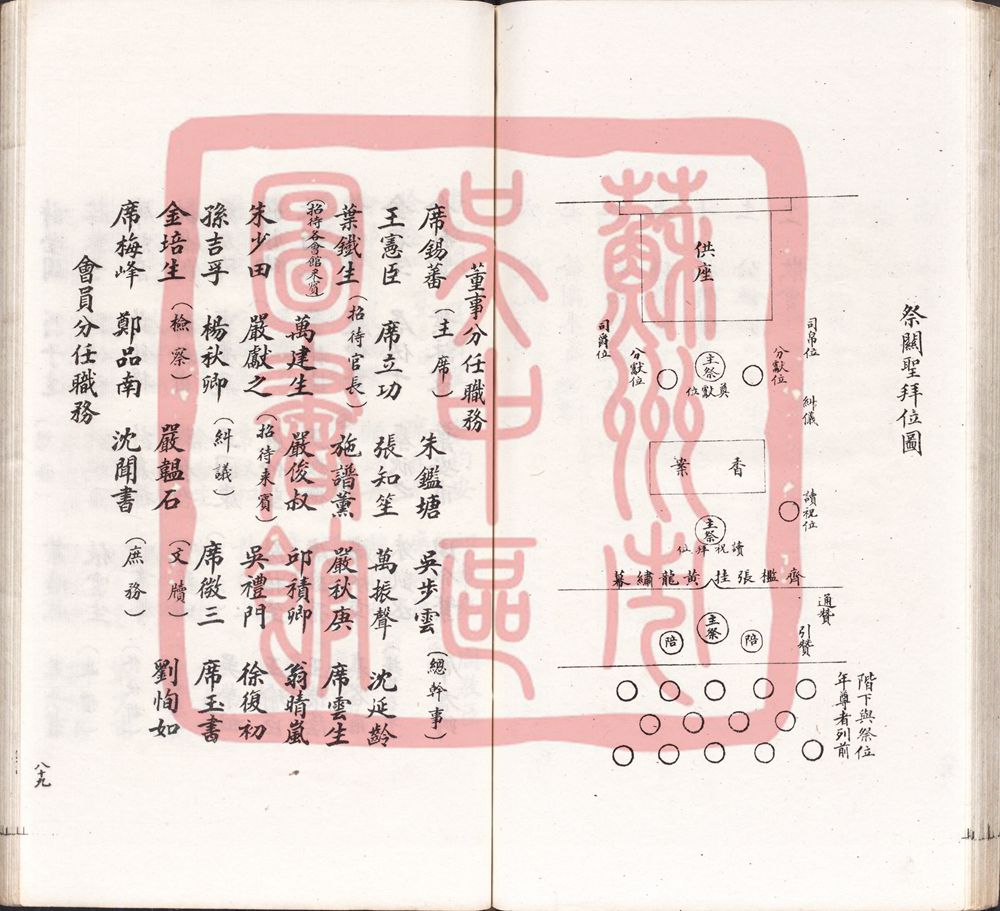 祭關聖拜位圖
供座
司帛位
司爵位
分獻位
分獻位
主祭
奠獻位
糾儀
香案
讀祝位
主祭
讀祝拜位
齊檻張挂黃龍繡幕
通贊
引贊
陪
主祭
陪
階下與祭位
年尊者列前
董事分任職務
席錫蕃（主席） 朱鑑塘 吳步雲（總幹事）
王憲臣 席立功 張知笙 萬振聲 沈延齡
葉鐵生（招待官長） 施譜薰 嚴秋庚 席雲生
（招待各會館來賓） 萬建生 嚴俊叔 邱積卿 翁晴嵐
朱少田 嚴獻之（招待來賓） 吳禮門 徐復初
孫吉孚 楊秋卿（糾議） 席微三 席玉書
金培生（檢察） 嚴韞石（文牘） 劉恂如
席梅峰 鄭品南 沈聞書（庶務）
會員分任職務
八十九
蘇州市
吳中區
圖書館